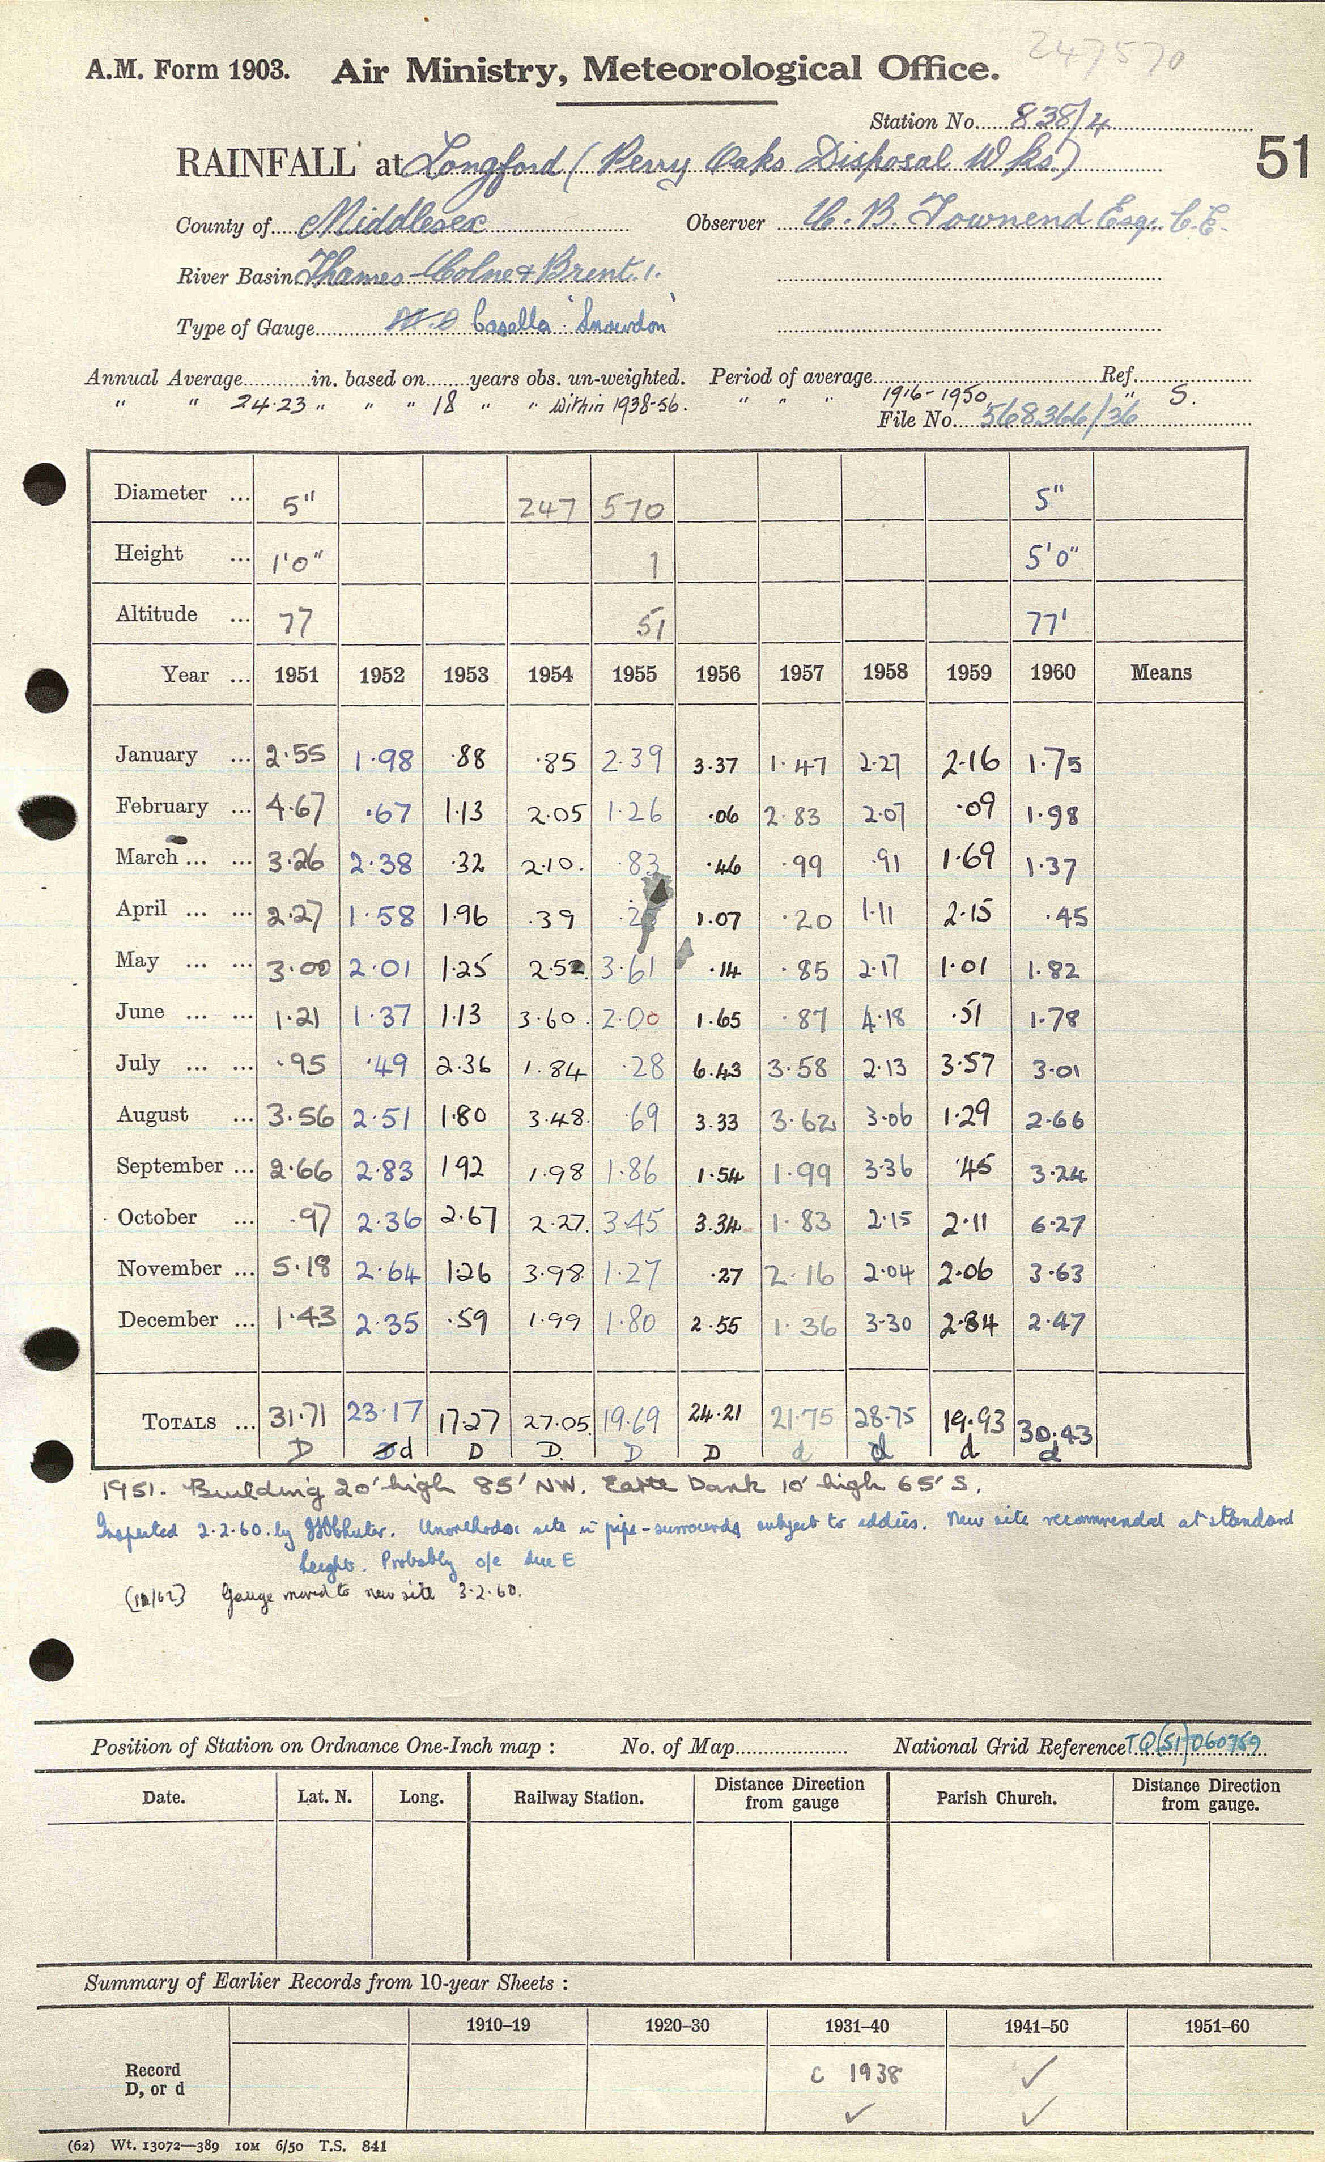 247570
A.M. Form 1903. Air Ministry, Meteorological Office.
Station No. 838/4
51
RAINFALL at Longford (Perry Oaks Disposal Wks)
County of Middlesex Observer C. B. Townend Esq. C.E.
River Basin Thames-Colne & Brent. 1.
Type of Gauge M.O Casella 'Snowdon'
Annual Average in. based on years obs. un-weighted. Period of average Ref.
" " 24.23 " " " 18 " " Within 1938-56. " " " 1916-1950 " S.
File No. 568366/36
Diameter ... 5" 247 570 5"
Height ... 1'0" 1 5'0"
Altitude ... 77 51 77'
Year ... 1951 1952 1953 1954 1955 1956 1957 1958 1959 1960 Means
January ... 2.55 1.98 .88 .85 2.39 3.37 1.47 2.27 2.16 1.75
February ... 4.67 .67 1.13 2.05 1.26 .06 2.83 2.07 .09 1.98
March ... ... 3.26 2.38 .32 2.10. .83 .46 .99 .91 1.69 1.37
April ... ... 2.27 1.58 1.96 .39 .25 1.07 .20 1.11 2.15 .45
May ... ... 3.00 2.01 1.25 2.52 3.61 .14 .85 2.17 1.01 1.82
June ... ... 1.21 1.37 1.13 3.60. 2.00 1.65 .87 4.18 .51 1.78
July ... ... .95 .49 2.36 1.84 .28 6.43 3.58 2.13 3.57 3.01
August ... 3.56 2.51 1.80 3.48. .69 3.33 3.62 3.06 1.29 2.66
September ... 2.66 2.83 1 92 1.98 1.86 1.54 1.99 3.36 .45 3.24
October ... .97 2.36 2.67 2.27. 3.45 3.34 1.83 2.15 2.11 6.27
November ... 5.18 2.64 1.26 3.98 1.27 .27 2.16 2.04 2.06 3.63
December ... 1.43 2.35 .59 1.99 1.80 2.55 1.36 3.30 2.84 2.47
TOTALS ... 31.71 23.17 17.27 27.05 19.69 24.21 21.75 28.75 19.93 30.43
D d D D. D D d d d d
1951. Building 20' high 85' NW. Earth Bank 10' high 65' S.
Inspected 2.2.60. by Unorthodox site in pipe-surrounds subject to eddies. New site recommended at standard
height. Probably o/e due E
Gauge moved to new site 3.2.60.
Position of Station on Ordnance One-Inch map : No. of Map National Grid Reference TQ(51)060759
Date. Lat. N. Long. Railway Station. Distance Direction from gauge Parish Church. Distance Direction from gauge.
Summary of Earlier Records from 10-year Sheets :
1910–19 1920–30 1931–40 1941–50 1951–60
Record c 1938 ✓
D, or d ✓ ✓
(62) Wt. 13072—389 10M 6/50 T.S. 841